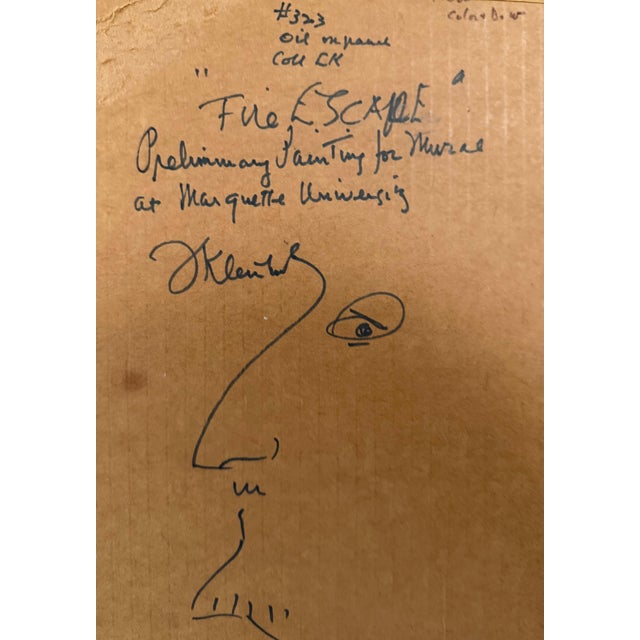 Color
#323
Oil on panel
Coll LK
"Fire ESCAPE"
Preliminary Painting for Mural
at Marquette University